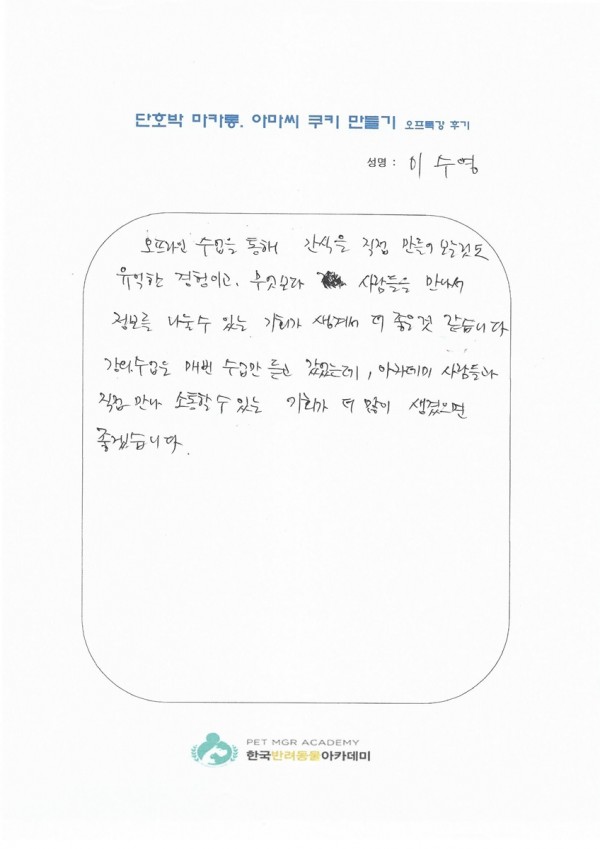 단호박 마카롱. 아마씨 쿠키 만들기 오프특강 후기
성명 : 이수영
오프라인 수업을 통해 간식을 직접 만들어 보는것도
유익한 경험이고, 무엇보다 사람들을 만나서
정보를 나눌수 있는 기회가 생겨서 더 좋은것 같습니다
강의수업은 매번 수업만 듣고 갔었는데, 아카데미 사람들과
직접 만나 소통할 수 있는 기회가 더 많이 생겼으면
좋겠습니다.
PET MGR ACADEMY
한국반려동물아카데미